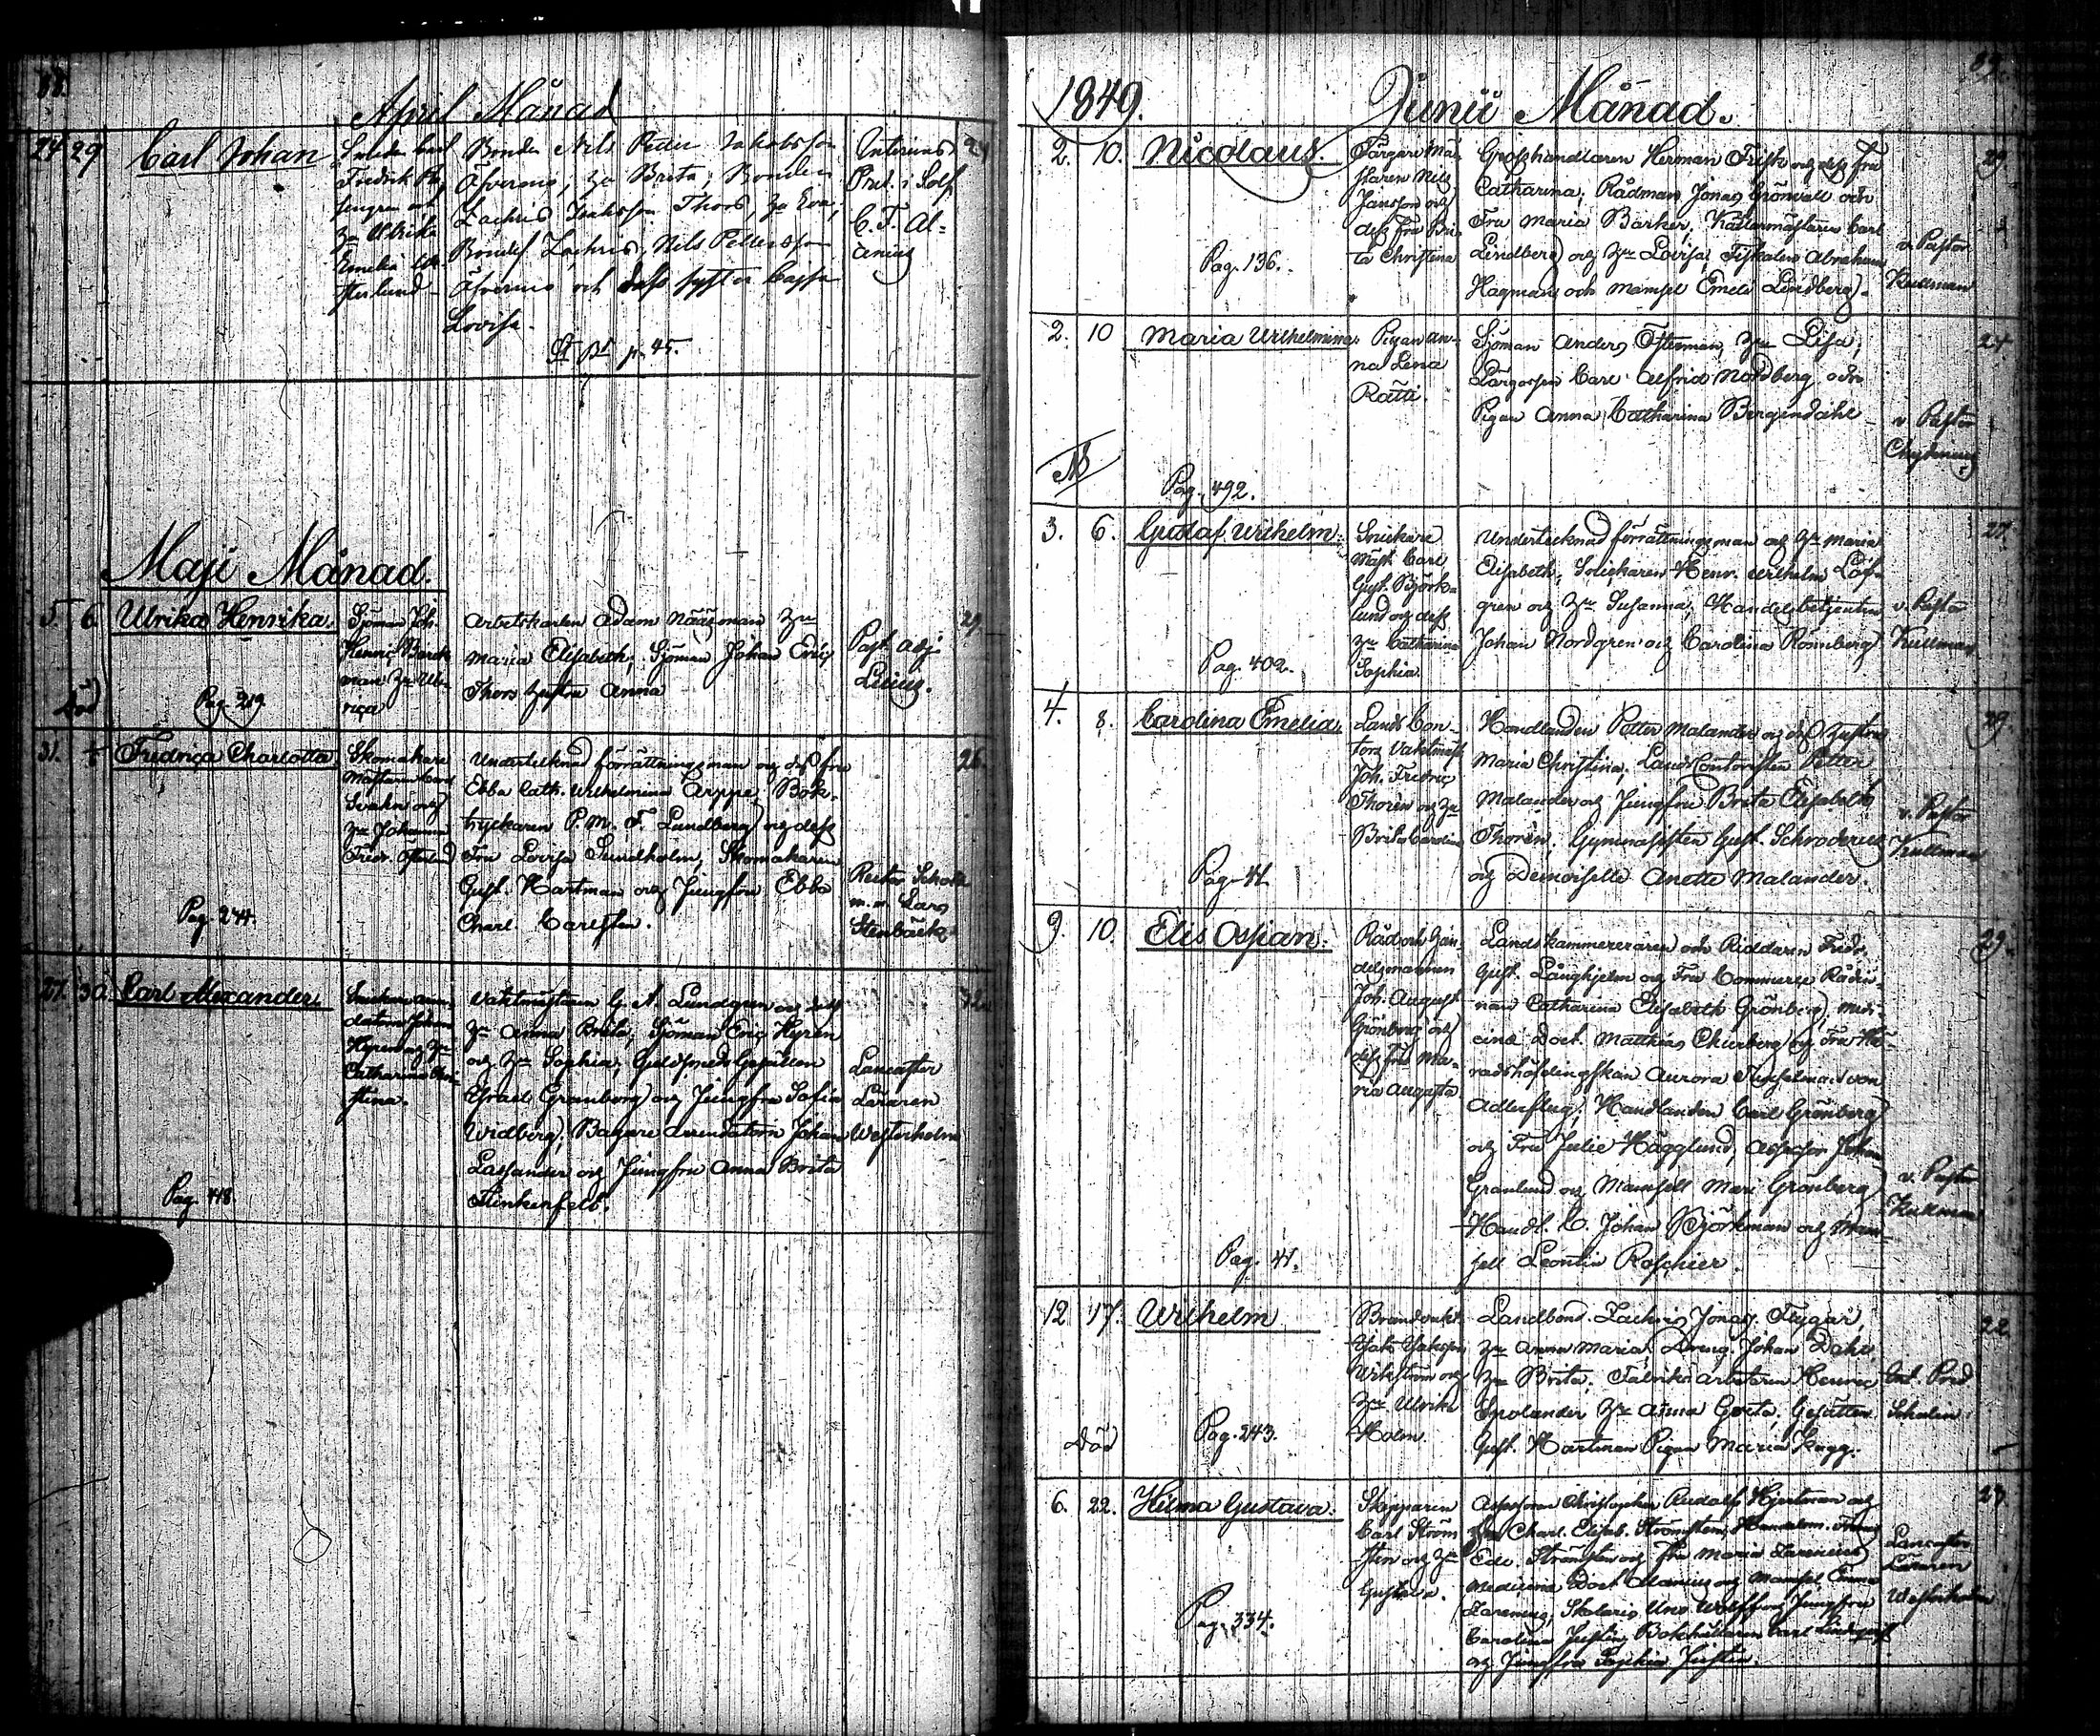 88.
April Månad
24 29 Carl Johan
Smeden Carl
Fredrik
och
hu Ulrika
Emelia
Bonden Nils Petter Jakobsson
Öfvernes, hu Brita; Bonden
Zachris Isaksson Thors, hu Eva;
Bondes. Zachris Nils Pettersson
Öfvernes och dess syster Cajsa
Lovisa.
p. 45.
Interims
Pred. i Solf
C. F. Al-
cenius
Maji Månad.
5 6 Ulrika Henrika.
Död
Pag. 219
Sjöman Joh.
Henric
man hu Ul-
rica
Arbetskarlen Adam Nääsman hu
Maria Elisabeth; Sjöman Johan Eric
Thors hustru Anna
Past. Adj.
29
31. Fredrica Charlotta
Pag. 244.
Skomakare
Mästaren Carl
Svahn och
hu Johanna
Fredr. Österlund
Undertecknad förrättningsman och dess fru
Ebba Cath. Wilhelmina Arppe, Bok-
tryckaren P. M. F. Lundberg och dess
Fru Lovisa Sundholm, Skomakaren
Gust. Hartman och Jungfru Ebba
Charl. Carlsten.
Rector Scholæ
m. m. Lars
Stenbäck
26.
27. 30 Carl Alexander.
Pag. 418
Johan
Hyren och hu
Catharina Chri-
stina.
Vaktmästaren G. A. Lundgren och dess
hu Anna Brita, Sjöman Eric Hyren
och hu Sophia; Guldsmeds Gesällen
Israel Granberg och Jungfru Sofia
Widberg, Bagare Arrendatorn Johan
Lassander och Jungfru Anna Brita
Flinkenfelt.
Lancaster
Läraren
Westerholm
89.
1849. Junii Månad.
2. 10. Nicolaus.
Pag. 136.
Färgare Mä-
staren Nils
Jansson och
dess Fru Bri-
ta Christina
Grosshandlaren Herman Frisk och dess fru
Catharina; Rådman Jonas Grönvall och
Fru Maria Barker, Källarmästaren Carl
Lindberg och hu Lovisa, Fiskalen Abraham
Hagman och Mamsel Emeli Lindberg.
v. Pastor
Kullman
29.
2. 10 Maria Wilhelmina
NB
Pag. 492.
Pigan An-
na Lena
Rätti.
Sjöman Anders Österman, hu Lisa;
Lärgossen Carl Alfrid Nordberg och
Pigan Anna Catharina Bergendahl
v. Pastor
Chydenius
24
3. 6. Gustaf Wilhelm.
Pag. 402.
Snickare
Mäst. Carl
Gust. Björk-
lund och dess
hu Catharina
Sophia.
Undertecknad förrättningsman och hu Maria
Elisabeth; Snickaren Henr. Wilhelm Löf-
gren och hu Susanna, Handelsbetjenten
Johan Nordgren och Carolina Rönnberg
v. Pastor
Kullman
27.
4. 8. Carolina Emelia.
Pag. 41
Lands Con-
tors Vaktmäst.
Joh. Fredric
Thorén och hu
Brita Carolina
Handlanden Petter Malander och dess hustru
Maria Christina. Lands Contoristen Petter
Malander och Jungfru Brita Elisabeth
Thorén, Gymnasisten Gust. Schroderus
och Demoiselle Anette Malander.
v. Pastor
Kullman
39.
9. 10. Elis Ossian.
Pag. 41.
Råd och Han-
delsmannen
Joh. August
Grönberg och
dess Fru Ma-
ria Augusta
Landskammereraren och Riddaren Fredr.
Gust. Långhjelm och Fru Commerce Rådin-
nan Catharina Elisabeth Grönberg, Medi-
cine Doct. Matthias Churberg och Fru Hä-
radshöfdingskan Aurora von
Adlerflug; Handlanden Carl Grönberg
och Fru Julie Hägglund, Assessor Johan
Granlund och Mamsell Mari Grönberg
Handl. C. Johan Björkman och Mam-
sell Leontin Raschier.
v. Pastor
Kullman
29.
12 17. Wilhelm
Död
Pag. 243.
Brandvakt.
Jak. Jakobson
Wikström och
hu Ulrika
Holm
Landbond. Zachris Jonas. Flygar,
hu Anna Maria, Dreng. Johan Dahl,
hu Brita; Fabriks arbetaren Henric
Spolander hu Anna Greta. Gesällen
Gust. Hartman Pigan Maria Kugg.
Pred
Schalin
22.
6. 22. Hilma Gustava.
Pag. 334.
Skepparen
Carl Ström-
sten och hu
Gustava.
Assessoren Christopher Rudolf Hjertman och
Fru Charl. Elisab. Strömsten, Handelsm. Frans
Edv. Strömsten och Fru Maria Larenius
Medicine Doct. Alanius och Mamsel Emma
Larenius, Skolaris Uno Wolff och Jungfru
Carolina Justin, Bokhållaren Carl Lindqvist
och Jungfru Sophia Justin.
Lancaster
Läraren
Westerholm
23.